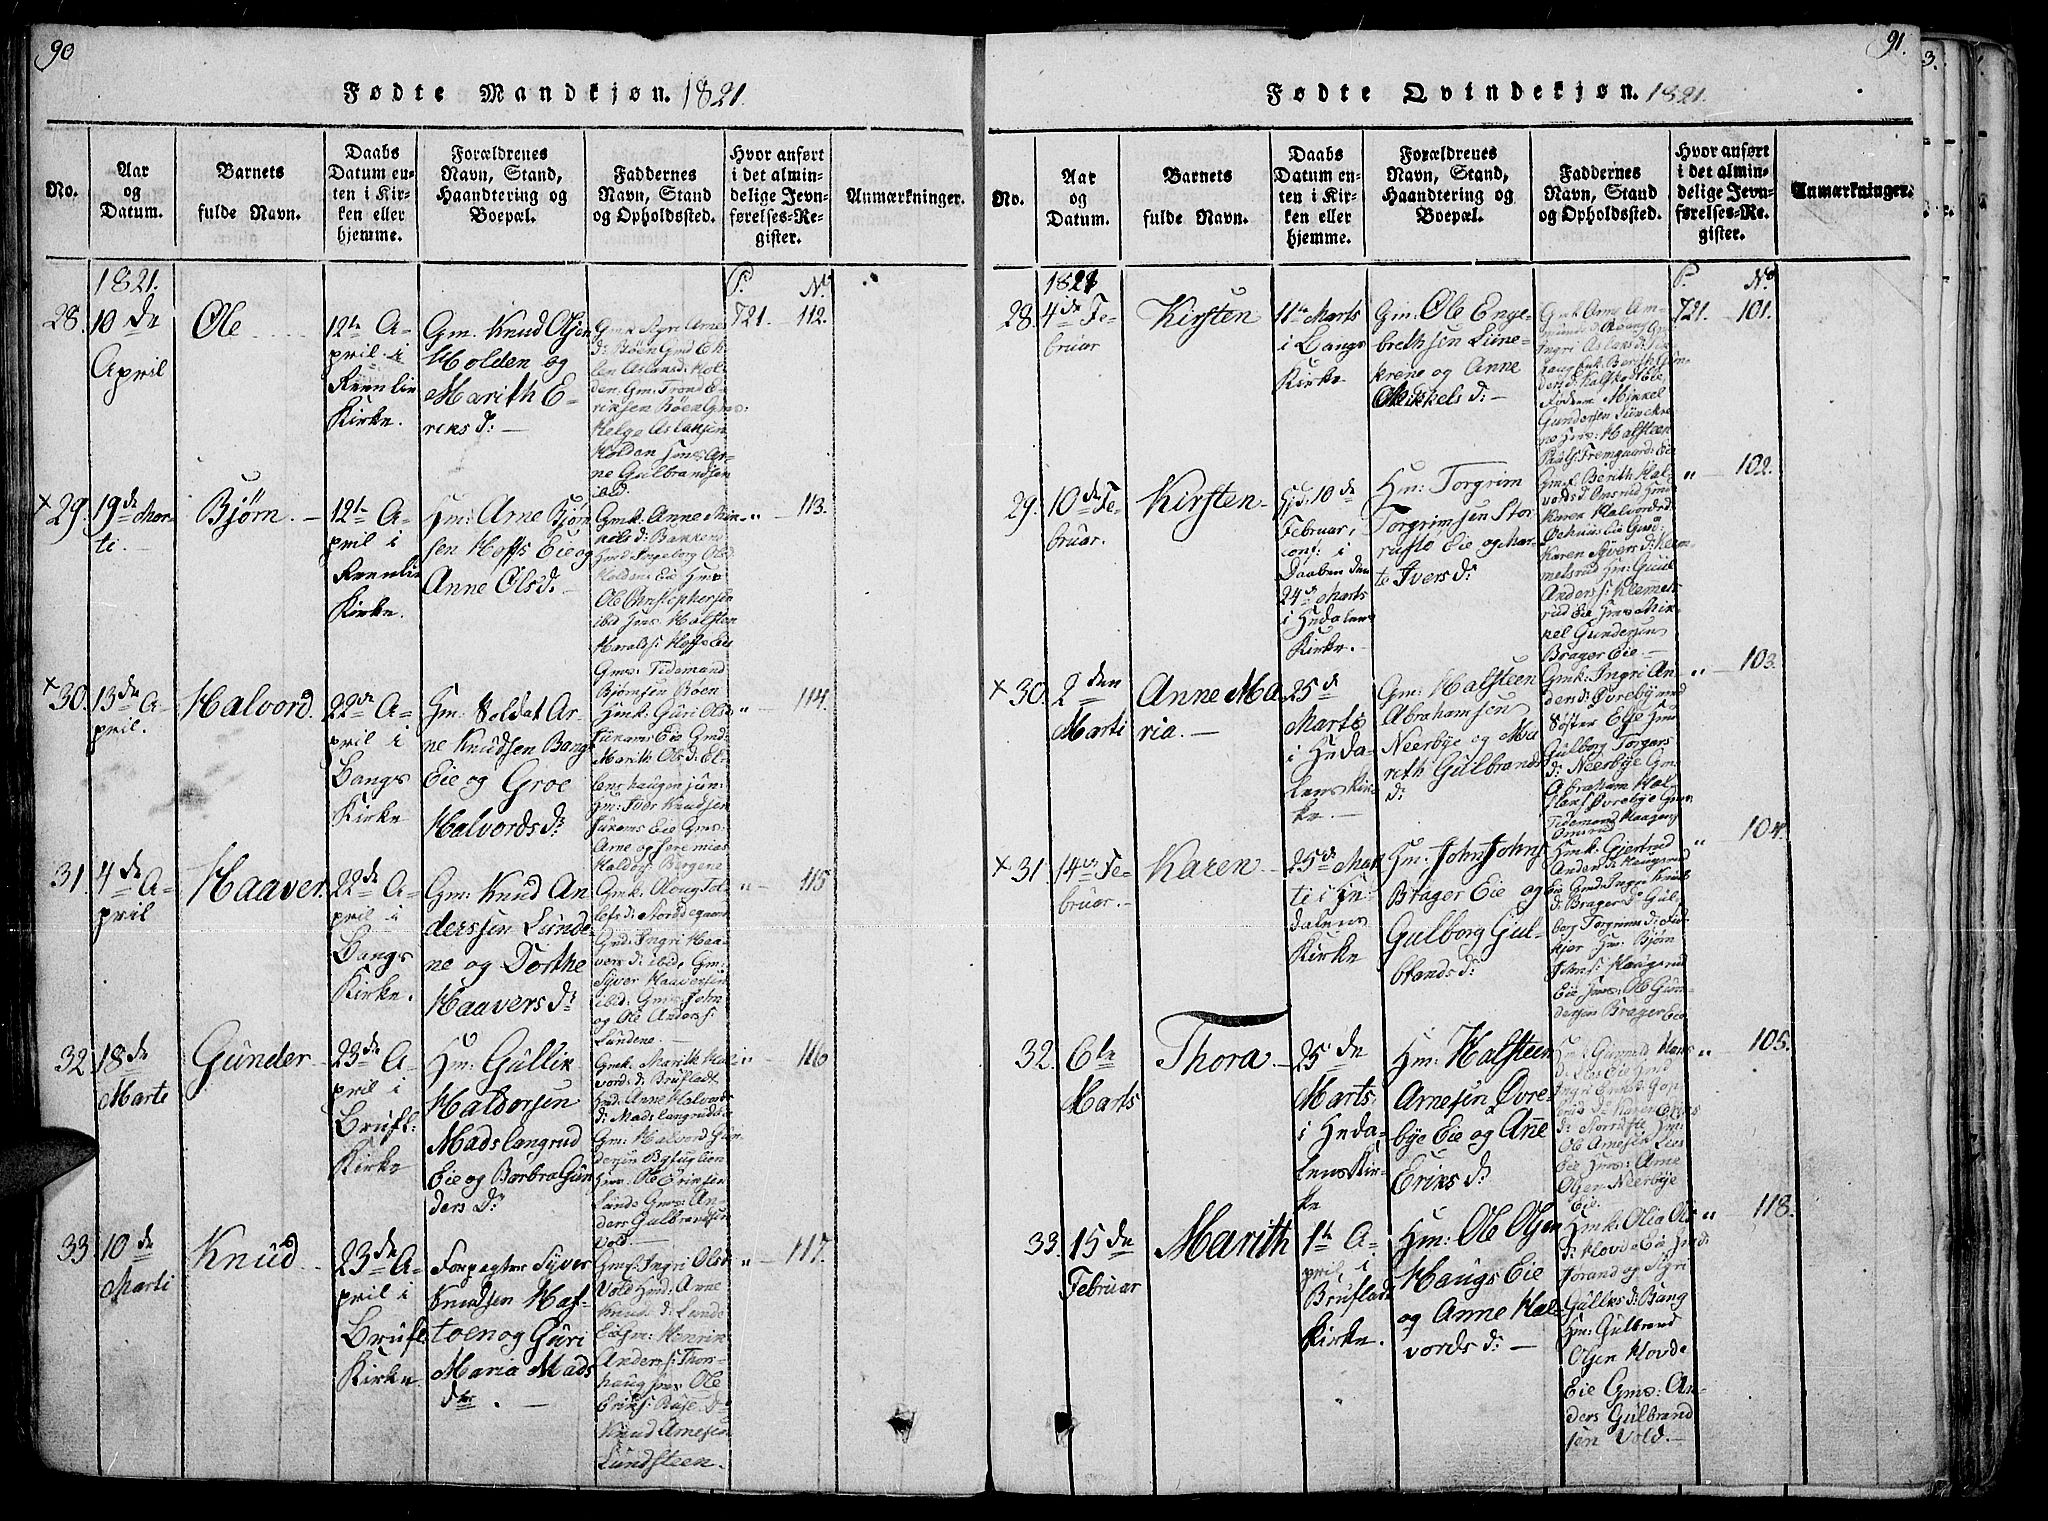 90
Fødte Mandkjøn. 1821.
No.
Aar
og
Datum.
Barnets
fulde Navn.
Daabs
Datum en-
ten i Kir-
ken eller
hjemme.
Forældrenes
Navn, Stand,
Haandtering og
Boepæl.
Faddernes
Navn, Stand
og Opholdssted.
Hvor anført
i det almin-
delige Jevn-
førelses-Re-
gister.
Anmærkninger.
1821.
P. No.
28.
10de
April
Ole
12te A-
pril i
Reenlie
Kirke.
Gm: Knud Olsen
Holden og
Marith E-
riks d:
Gmk Sigri Arne
d: Bøen Gmd El-
len Aslaks d: Hol-
den. Gm: Trond E-
riksen Bøen Gms:
Helge Aslaksen
Holden Jms. Ar-
ne Gulbrandsen
ibid.
721. 112.
×29.
19de Mar-
ti.
Bjørn.
12te A-
pril i
Reenlie
Kirke.
Hm: Arne Bjørn
sen Hoffs Eie og
Anne Ols d:
Gmk: Anne
Bakken
Hmd Ingeborg Ols d
Holden Eie Hms
Ole Christophersen
ibid Jms Halsten
Haralds: Hoffs Eie
Gms: Tidemand
Bjørnsen Bøen
" 113.
×30.
13de A-
pril.
Halvord
22de A-
pril i
Bangs
Kirke
Hm: Soldat Ar-
ne Knudsen Bang
Eie og Groe
Halvords d:
Hmk: Guri Ols d
Eie Gmd:
Marith Ols d: El-
lens haugen
Hm: Iver Knudsen
Eie Gms:
Arne og Jeremias
" 114.
31.
4de A-
pril
Haaver.
22de A-
pril i
Bangs
Kirke.
Gm: Knud An
derssen Lunde-
ne og Dorthe
Haavers d:
Gmk:
Gmd: Ingri Haa-
vers d: ibid, Gm:
Syver Haaversen
ibid: Gms: John
og Ole Anders:
Lundene
" 115
32.
18de
Marti
Gunder
23de A-
pril i
Brufl:
Kirke
Hm: Gullik
Haldorsen
Madslangrud
Eie og Barbra Gun
ders d:
Gmk: Marith Hal-
vord: d: Brufladt
Hmd: Anne Halvords
d: Madslangrud Eie
Gm: Halvord Gun
dersen Byfuglien
Hms. Ole Eriksen
Lunde Gms: An-
ders Gulbrandsen
Vold
" 116
33.
10de
Marti
Knud
23de A-
pril i
Brufl:
Kirke
Forpagter Syver
Knudsen Haf-
toen og Guri
Maria Mads
d:
Gmk: Ingri Ols d
Vold Hmd: Arne
Knuds d: Lunde
Eie Gm: Henrik
Anders: Thor-
haug Jms Ole
Eriks:
Knud Arnesen
Lundsteen.
" 117.
91.
Fødte Qvindekjøn. 1821.
No.
Aar
og
Datum.
Barnets
fulde Navn.
Daabs
Datum en-
ten i Kir-
ken eller
hjemme.
Forældrenes
Navn, Stand,
Haandtering og
Boepæl.
Faddernes
Navn, Stand
og Opholdssted.
Hvor anført
i det almin-
delige Jevn-
førelses-Re-
gister.
Anmærkninger.
1821
P. No
28.
4de Fe-
bruar
Kirsten
11te Marts
i Bangs
Kirke
Gm: Ole Enge-
brethsen
og Anne
Mikkels d:
Gmk Anne
Ingri Aslaks d:
Mikkel
Gundersen
Halsteen
721. 101.
29.
10de Fe-
bruar.
Kirsten
Hjd: 10de
Februar,
conf: i
Daaben den
24de Marts
i Hedalens
Kirke.
Hm: Torgrim
Torgrimsen Stor-
rusto Eie og Mar-
te Ivers d:
Gmk: Berith Hal-
vords d Omsrud Hmd
Karen Halvords d
Karen Syvers d: Klem-
metsrud Hm: Guul
Anders: Klemmets-
rud Eie Jms Mik-
kel Gundersen
Brager Eie
" 102.
×30.
2den
Marti
Anne Ma
ria.
25de
Marti
i Heda-
lens Kir-
ke.
Gm: Halsteen
Abrahamsen
Neerbye og Ma
reth Gulbrands
d:
Gmk: Ingri An-
ders d: Øvrebye med
Søster Else Hmd
Gulborg Torgers
d: Neerbye Gm:
Abraham Hal
stens: Øvrebye Gms
Tidemand Haagens:
Omsrud
" 103.
×31.
14de Fe-
bruar.
Karen
25de Mar
ti i He-
dalens
Kirke
Hm: John Johns:
Brager Eie og
Gulborg Gul-
brands d:
Hmk: Giertrud
Anders d: Haugsrud
Eie Gmd: Ingri Knuds
d: Brager d: Gul-
borg Torgrims d:
Hm: Bjørn
Johns: Haugsrud
Eie Jms: Ole Gun-
dersen Brager Eie
" 104.
32.
6te
Marts
Thora
25de
Marts
i Heda-
lens Kir-
ke
Hm: Halsteen
Arnesen Øvre-
bye Eie og Ane
Eriks d:
Gunnild Hans
d: Lies Eie Hmd
Ingri Eriks d:
Karen Eriks
d: Storrusto Hm:
Ole Arnesen Lies
Eie Jms: Arne
Olsen Neerbye
Eie.
" 105.
33.
15de
Februar
Marith
1te A-
pril i
Bruflad
Kirke.
Hm: Ole Olsen
Haugs Eie
og Anne Hal-
vords d:
Hmk: Olia Ols
d: Klovde Eie Hmd:
Jorand og Sigri
Gulliks d: Bang
Hm: Gulbrand
Olsen Klovde
Eie Gms: An-
ders Gulbrand
sen Vold.
" 118.
3.